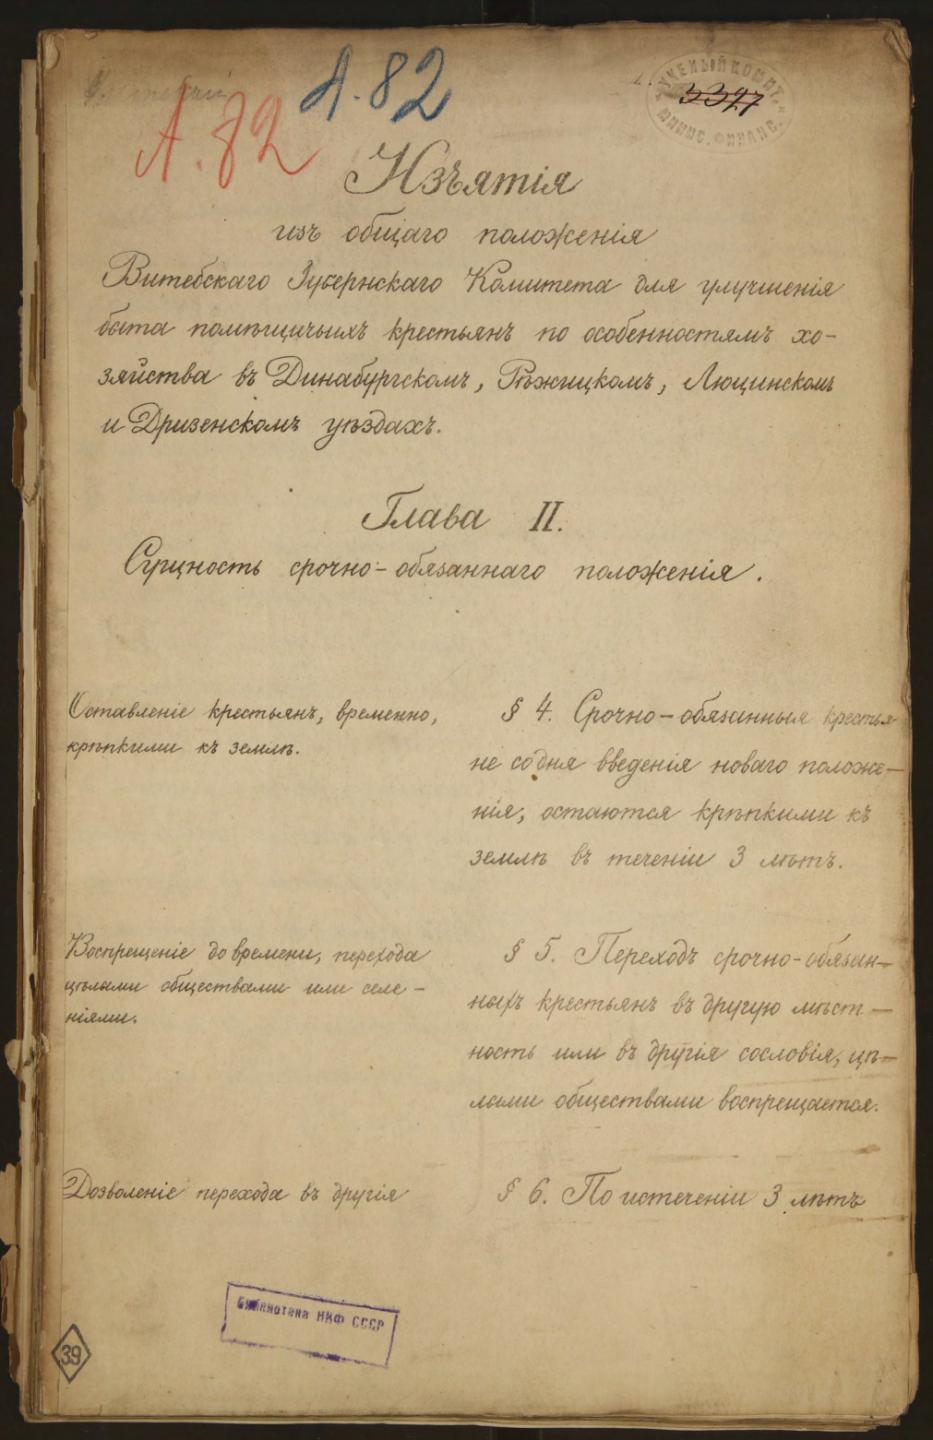 А.82
А.82
УЧЕНЫЙ КОМИТ.
3327
МИНИС. ФИНАНС.
Изъятія
изъ общаго положенія
Витебскаго Губернскаго Комитета для улучшенія
быта помѣщичьихъ крестьянъ по особенностямъ хо-
зяйства въ Динабургскомъ, Рѣжицкомъ, Люцинскомъ
и Дризенскомъ уѣздахъ.
Глава II.
Сущность срочно-обязаннаго положенія.
Оставленіе крестьянъ, временно,
крѣпкими къ землѣ.
§ 4. Срочно-обязанныя крестья
не со дня введенія новаго положе-
нія, остаются крѣпкими къ
землѣ въ теченіи 3 лѣтъ.
Воспрещеніе до времени, перехода
цѣлыми обществами или селе-
ніями.
§ 5. Переходъ срочно-обязан-
ныхъ крестьянъ въ другую мѣст-
ность или въ другія сословія, цѣ-
лыми обществами воспрещается.
Дозволеніе перехода въ другія
§ 6. По истеченіи 3 лѣтъ
Библиотека НКФ СССР
39